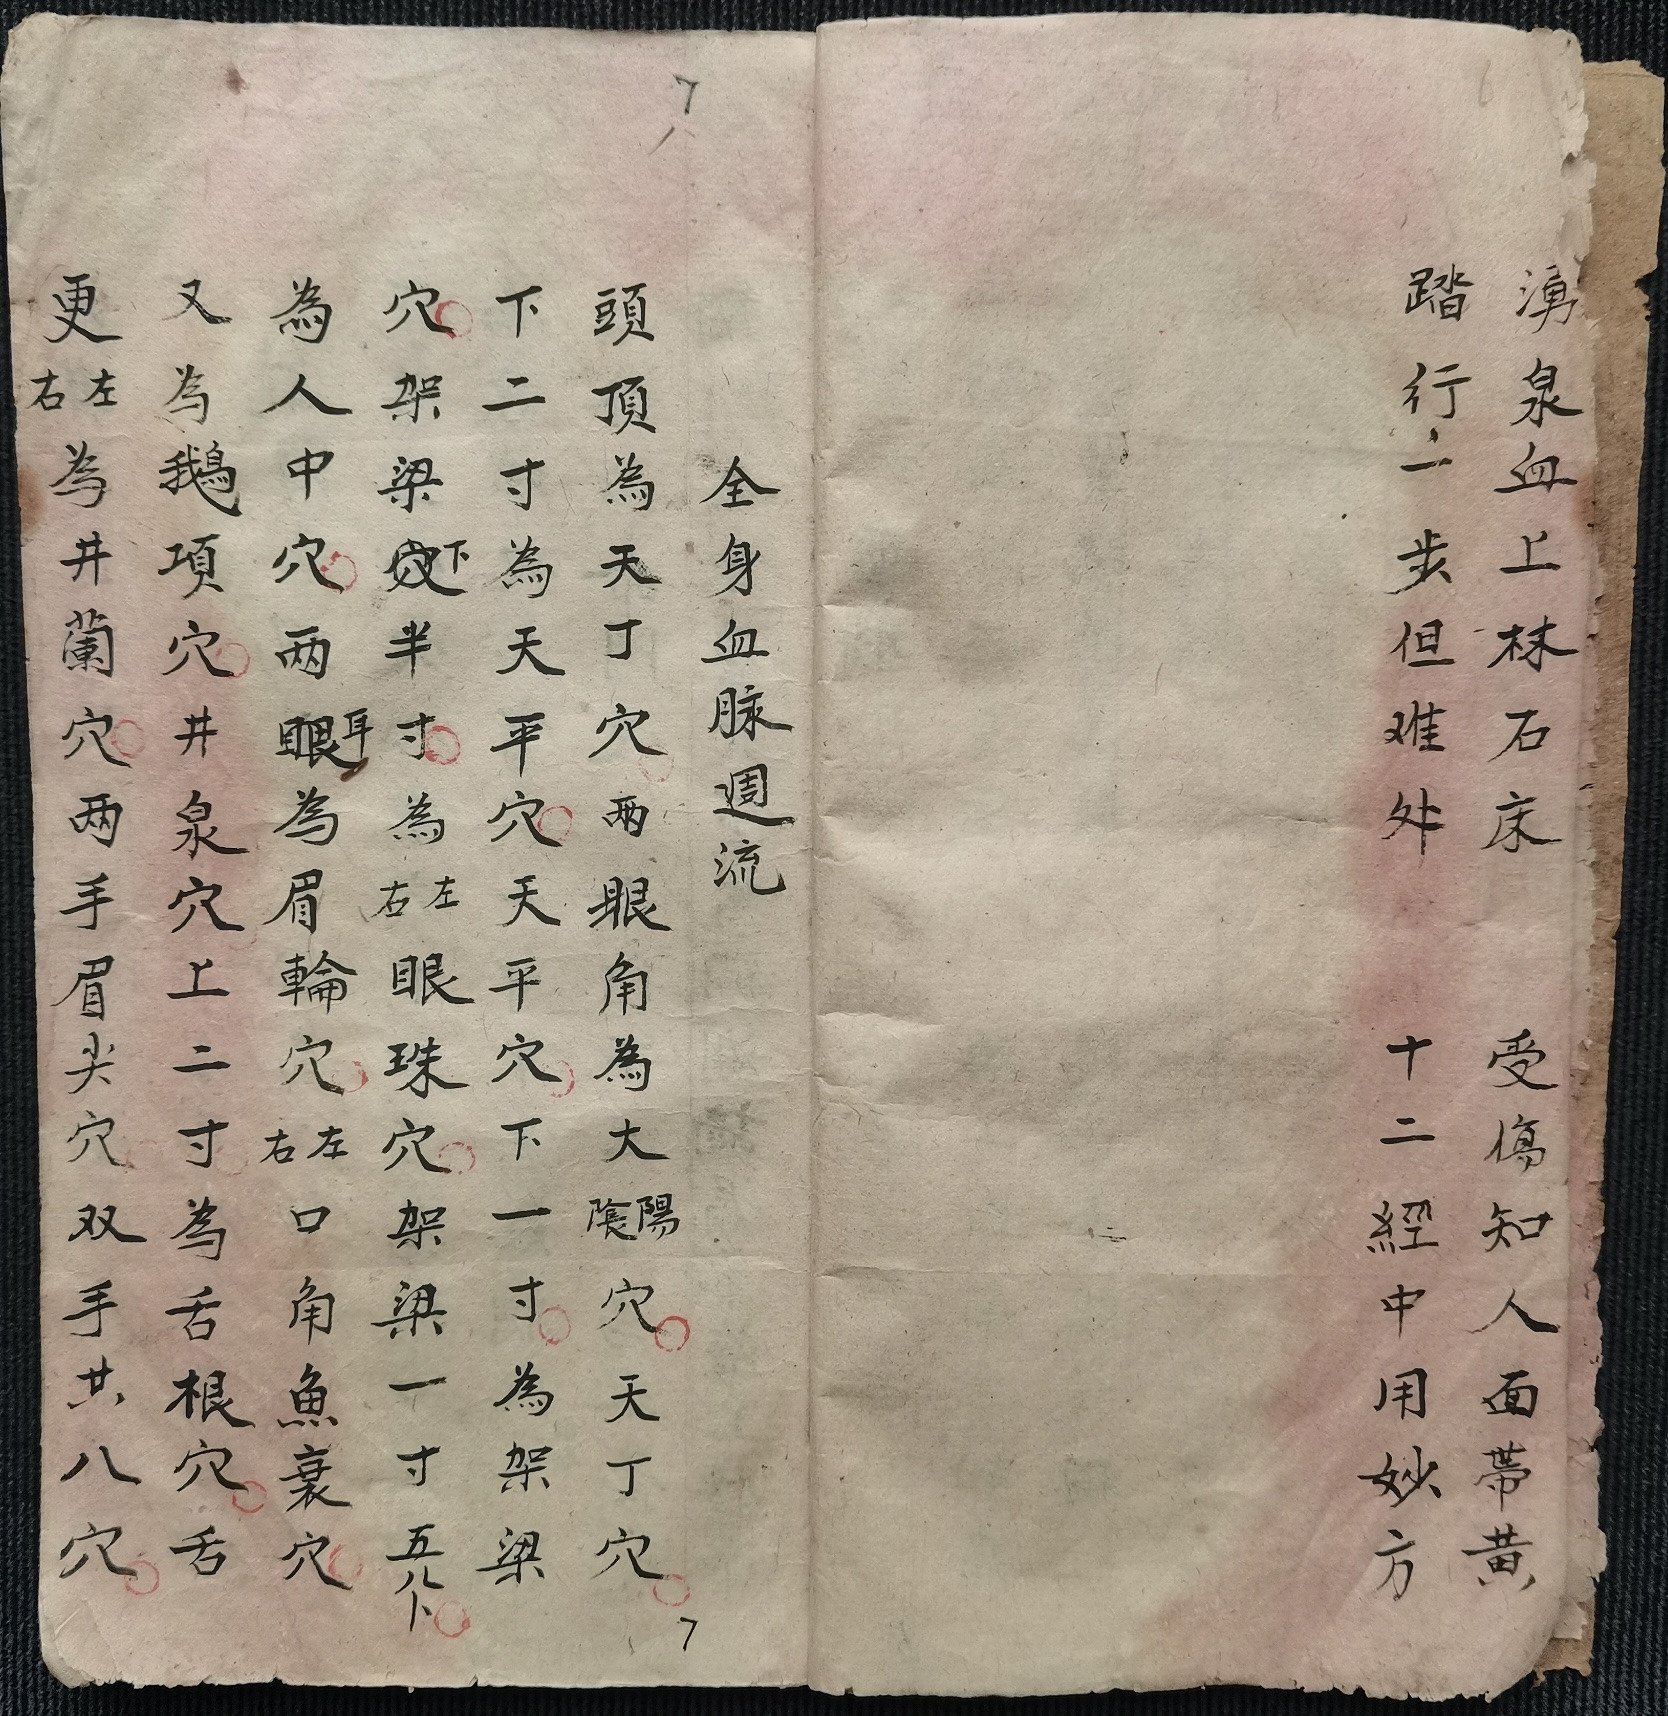 湧泉血上株石床　受傷知人面帶黃
踏行一步但难外　十二經中用妙方
6
7
全身血脉週流
頭頂為天丁穴两眼角為大陽陰穴天丁穴
下二寸為天平穴天平穴下一寸為架梁
穴架梁下半寸為左右眼珠穴架梁一寸五八卜
為人中穴两耳為眉輪穴左右口角魚裏穴
又為鵝項穴井泉穴上二寸為舌根穴舌
更左右為井蘭穴两手眉尖穴双手共八穴
7